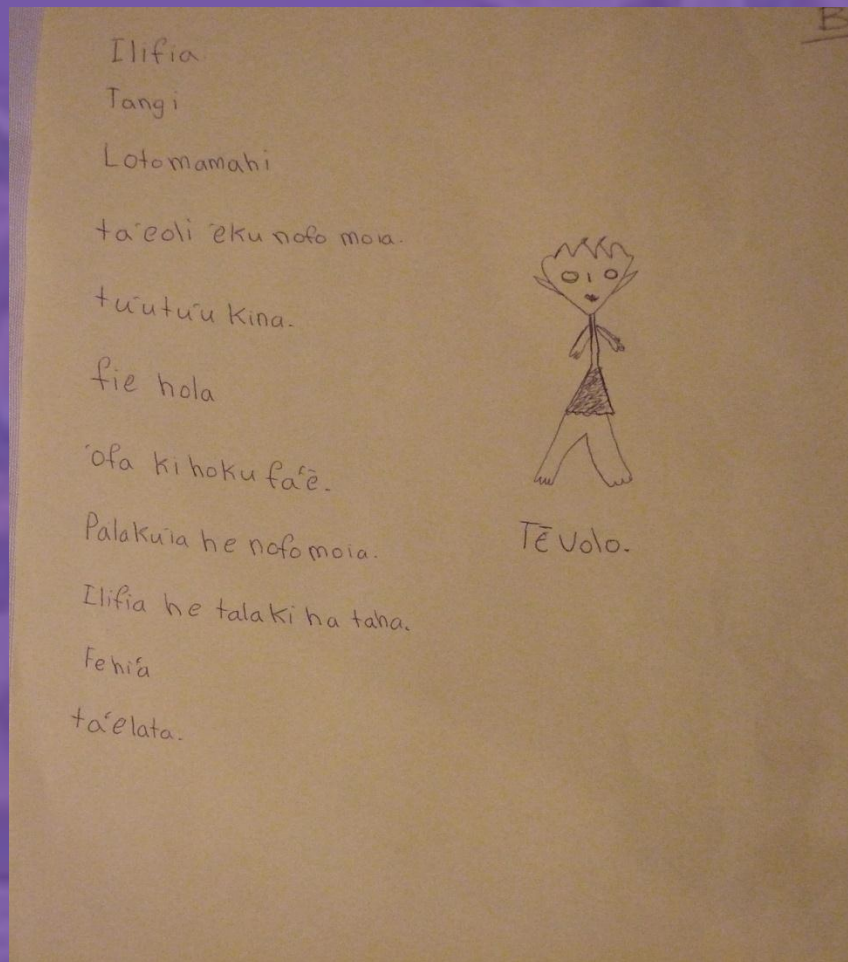 B
Ilifia
Tangi
Lotomamahi
ta'eoli 'eku nofo moia.
tu'utu'u kina.
fie hola
'ofa ki hoku fa'ē.
Palaku'ia he nofo moia.
Tēvolo.
Ilifia he talaki ha taha.
Fehi'a
ta'elata.